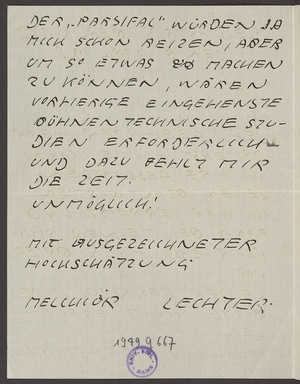 DER „PARSIFAL" WÜRDEN JA
MICH SCHON REIZEN, ABER
UM SO ETWAS ZU MACHEN
ZU KÖNNEN, WÄREN
VORHERIGE EINGEHENSTE
BÜHNENTECHNISCHE STU-
DIEN ERFORDERLICH —
UND DAZU FEHLT MIR
DIE ZEIT.
UNMÖGLICH!
MIT AUSGEZEICHNETER
HOCHSCHÄTZUNG
MELCHIOR LECHTER.
1949 g 667
UNIV. BIBL.
MAINZ